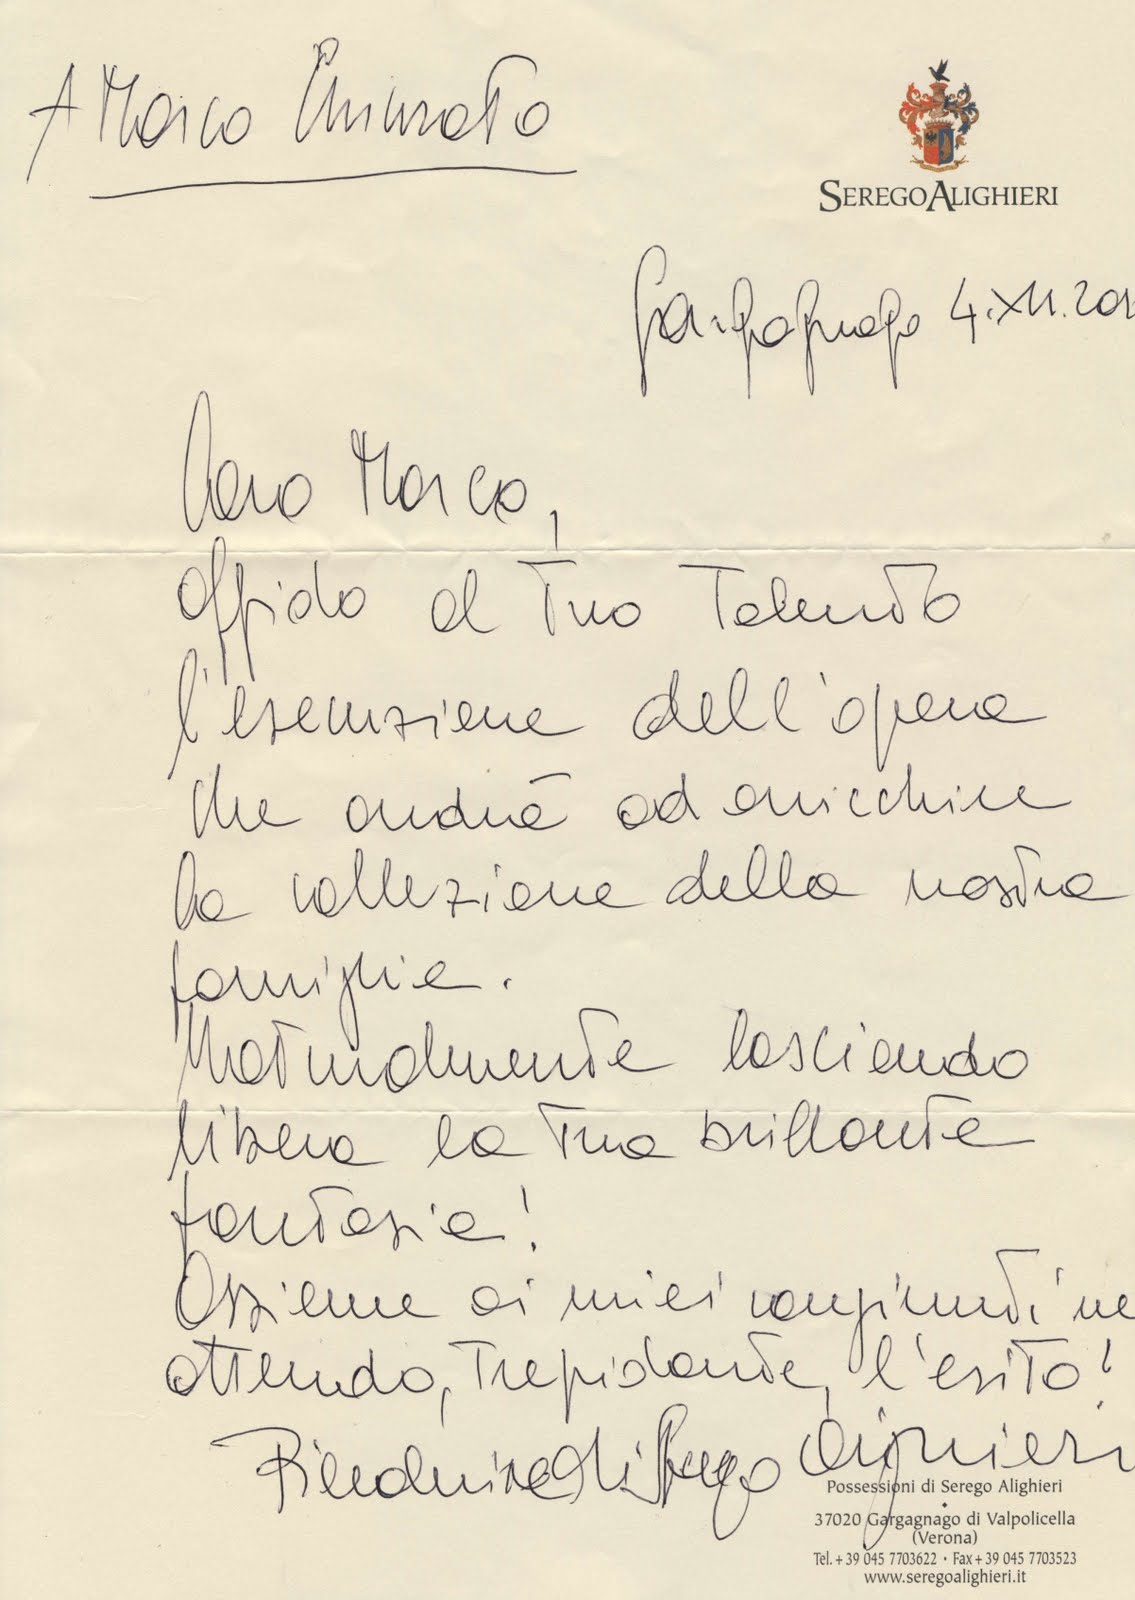 A Marco Chiurato
SEREGO ALIGHIERI
Gargagnago 4.XII.201
Caro Marco,
affido al Tuo Talento
l'esecuzione dell'opera
che andrà ad arricchire
la collezione della nostra
famiglia.
Naturalmente lasciando
libera la Tua brillante
fantasia!
Assieme ai miei congiunti ne
attendo, trepidante, l'esito!
Pieralvise di Serego Alighieri
Possessioni di Serego Alighieri
37020 Gargagnago di Valpolicella
(Verona)
Tel. + 39 045 7703622 • Fax + 39 045 7703523
www.seregoalighieri.it